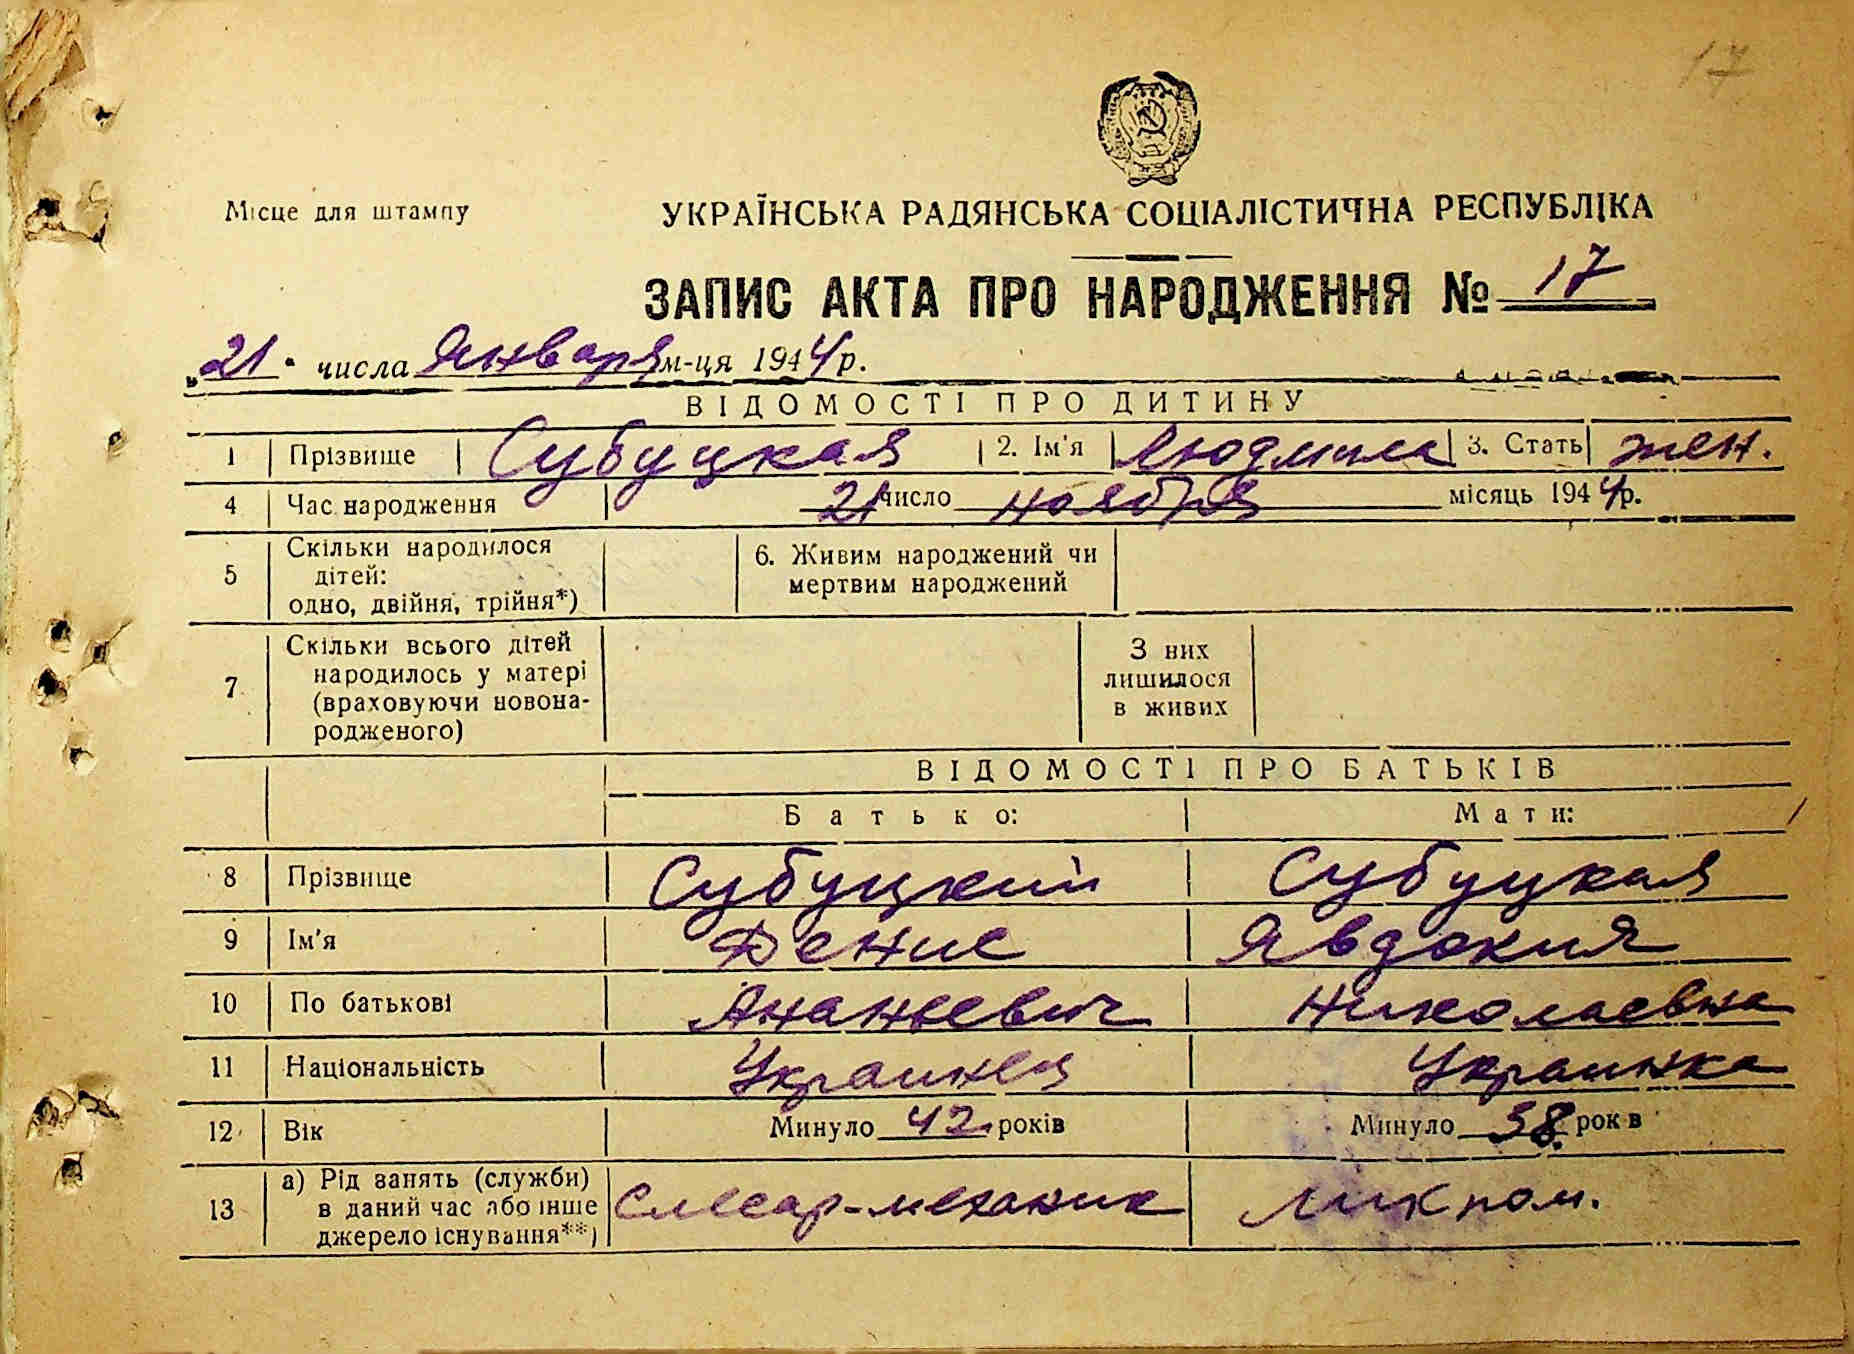 17
Місце для штампу
УКРАЇНСЬКА РАДЯНСЬКА СОЦІАЛІСТИЧНА РЕСПУБЛІКА
ЗАПИС АКТА ПРО НАРОДЖЕННЯ № 17
„21" числа Января м-ця 1944 р.
ВІДОМОСТІ ПРО ДИТИНУ
1 Прізвище Субуцкая 2. Ім'я Людмила 3. Стать жен.
4 Час народження 21 число ноября місяць 1944 р.
5 Скільки народилося дітей: одно, двійня, трійня*) 6. Живим народжений чи мертвим народжений
7 Скільки всього дітей народилось у матері (враховуючи новона-родженого) З них лишилося в живих
ВІДОМОСТІ ПРО БАТЬКІВ
Батько: Мати:
8 Прізвище Субуцкий Субуцкая
9 Ім'я Денис Явдокия
10 По батькові Ананьевич Николаевна
11 Національність Украинец Украинка
12 Вік Минуло 42 років Минуло 38 рок в
13 а) Рід занять (служби) в даний час або інше джерело існування**) Слесар-механик